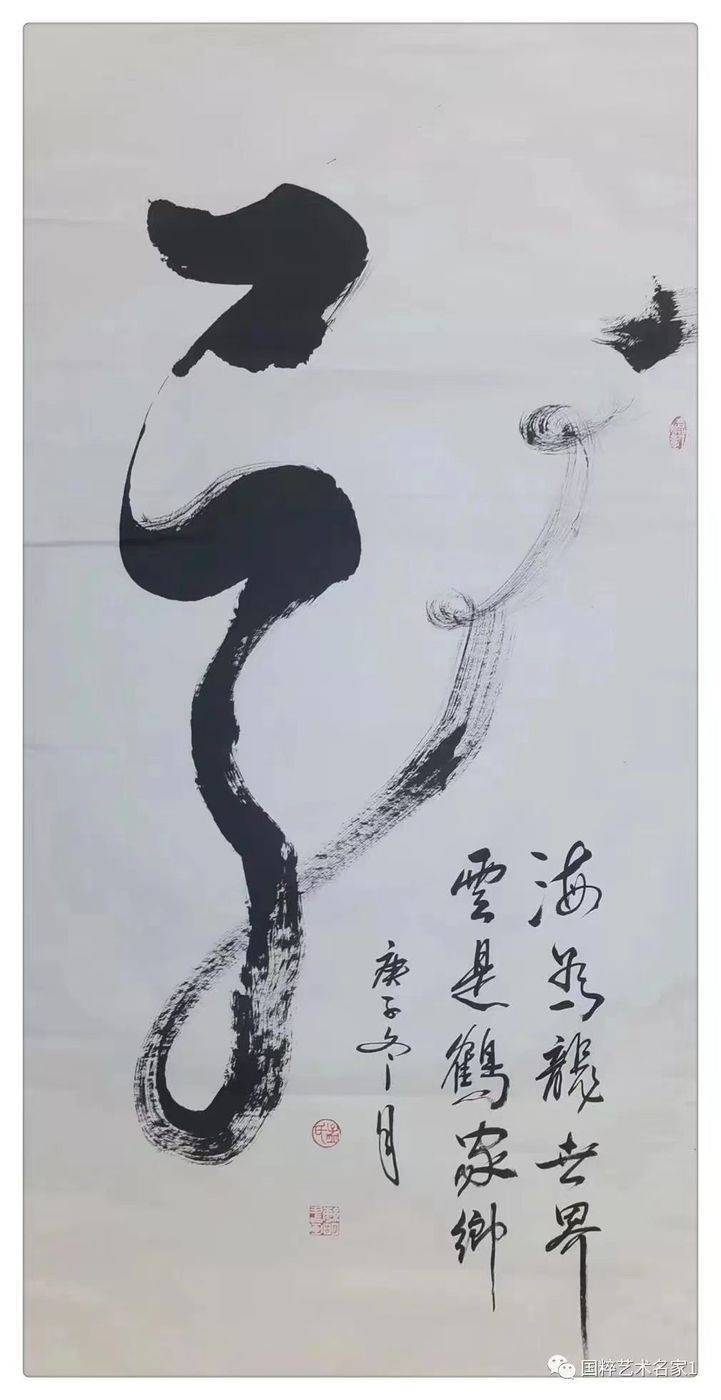 龍
海為龍世界
雲是鶴家鄉
庚子冬月
国粹艺术名家1